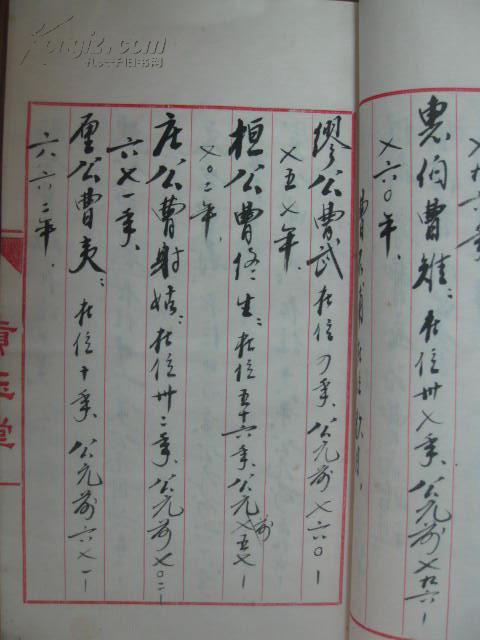 Kongfz.com
孔夫子旧书网
惠伯曹雉：在位卅七年、公元前七九六—
七六〇年、
缪公曹武在位四年、公元前七六〇—
七五七年、
桓公曹终生：在位五十六年、公元前七五七—
七〇二年、
庄公曹射姑：在位卅二年、公元前七〇二—
六七一年、
厘公曹夷：在位十年、公元前六七一—
六六二年、